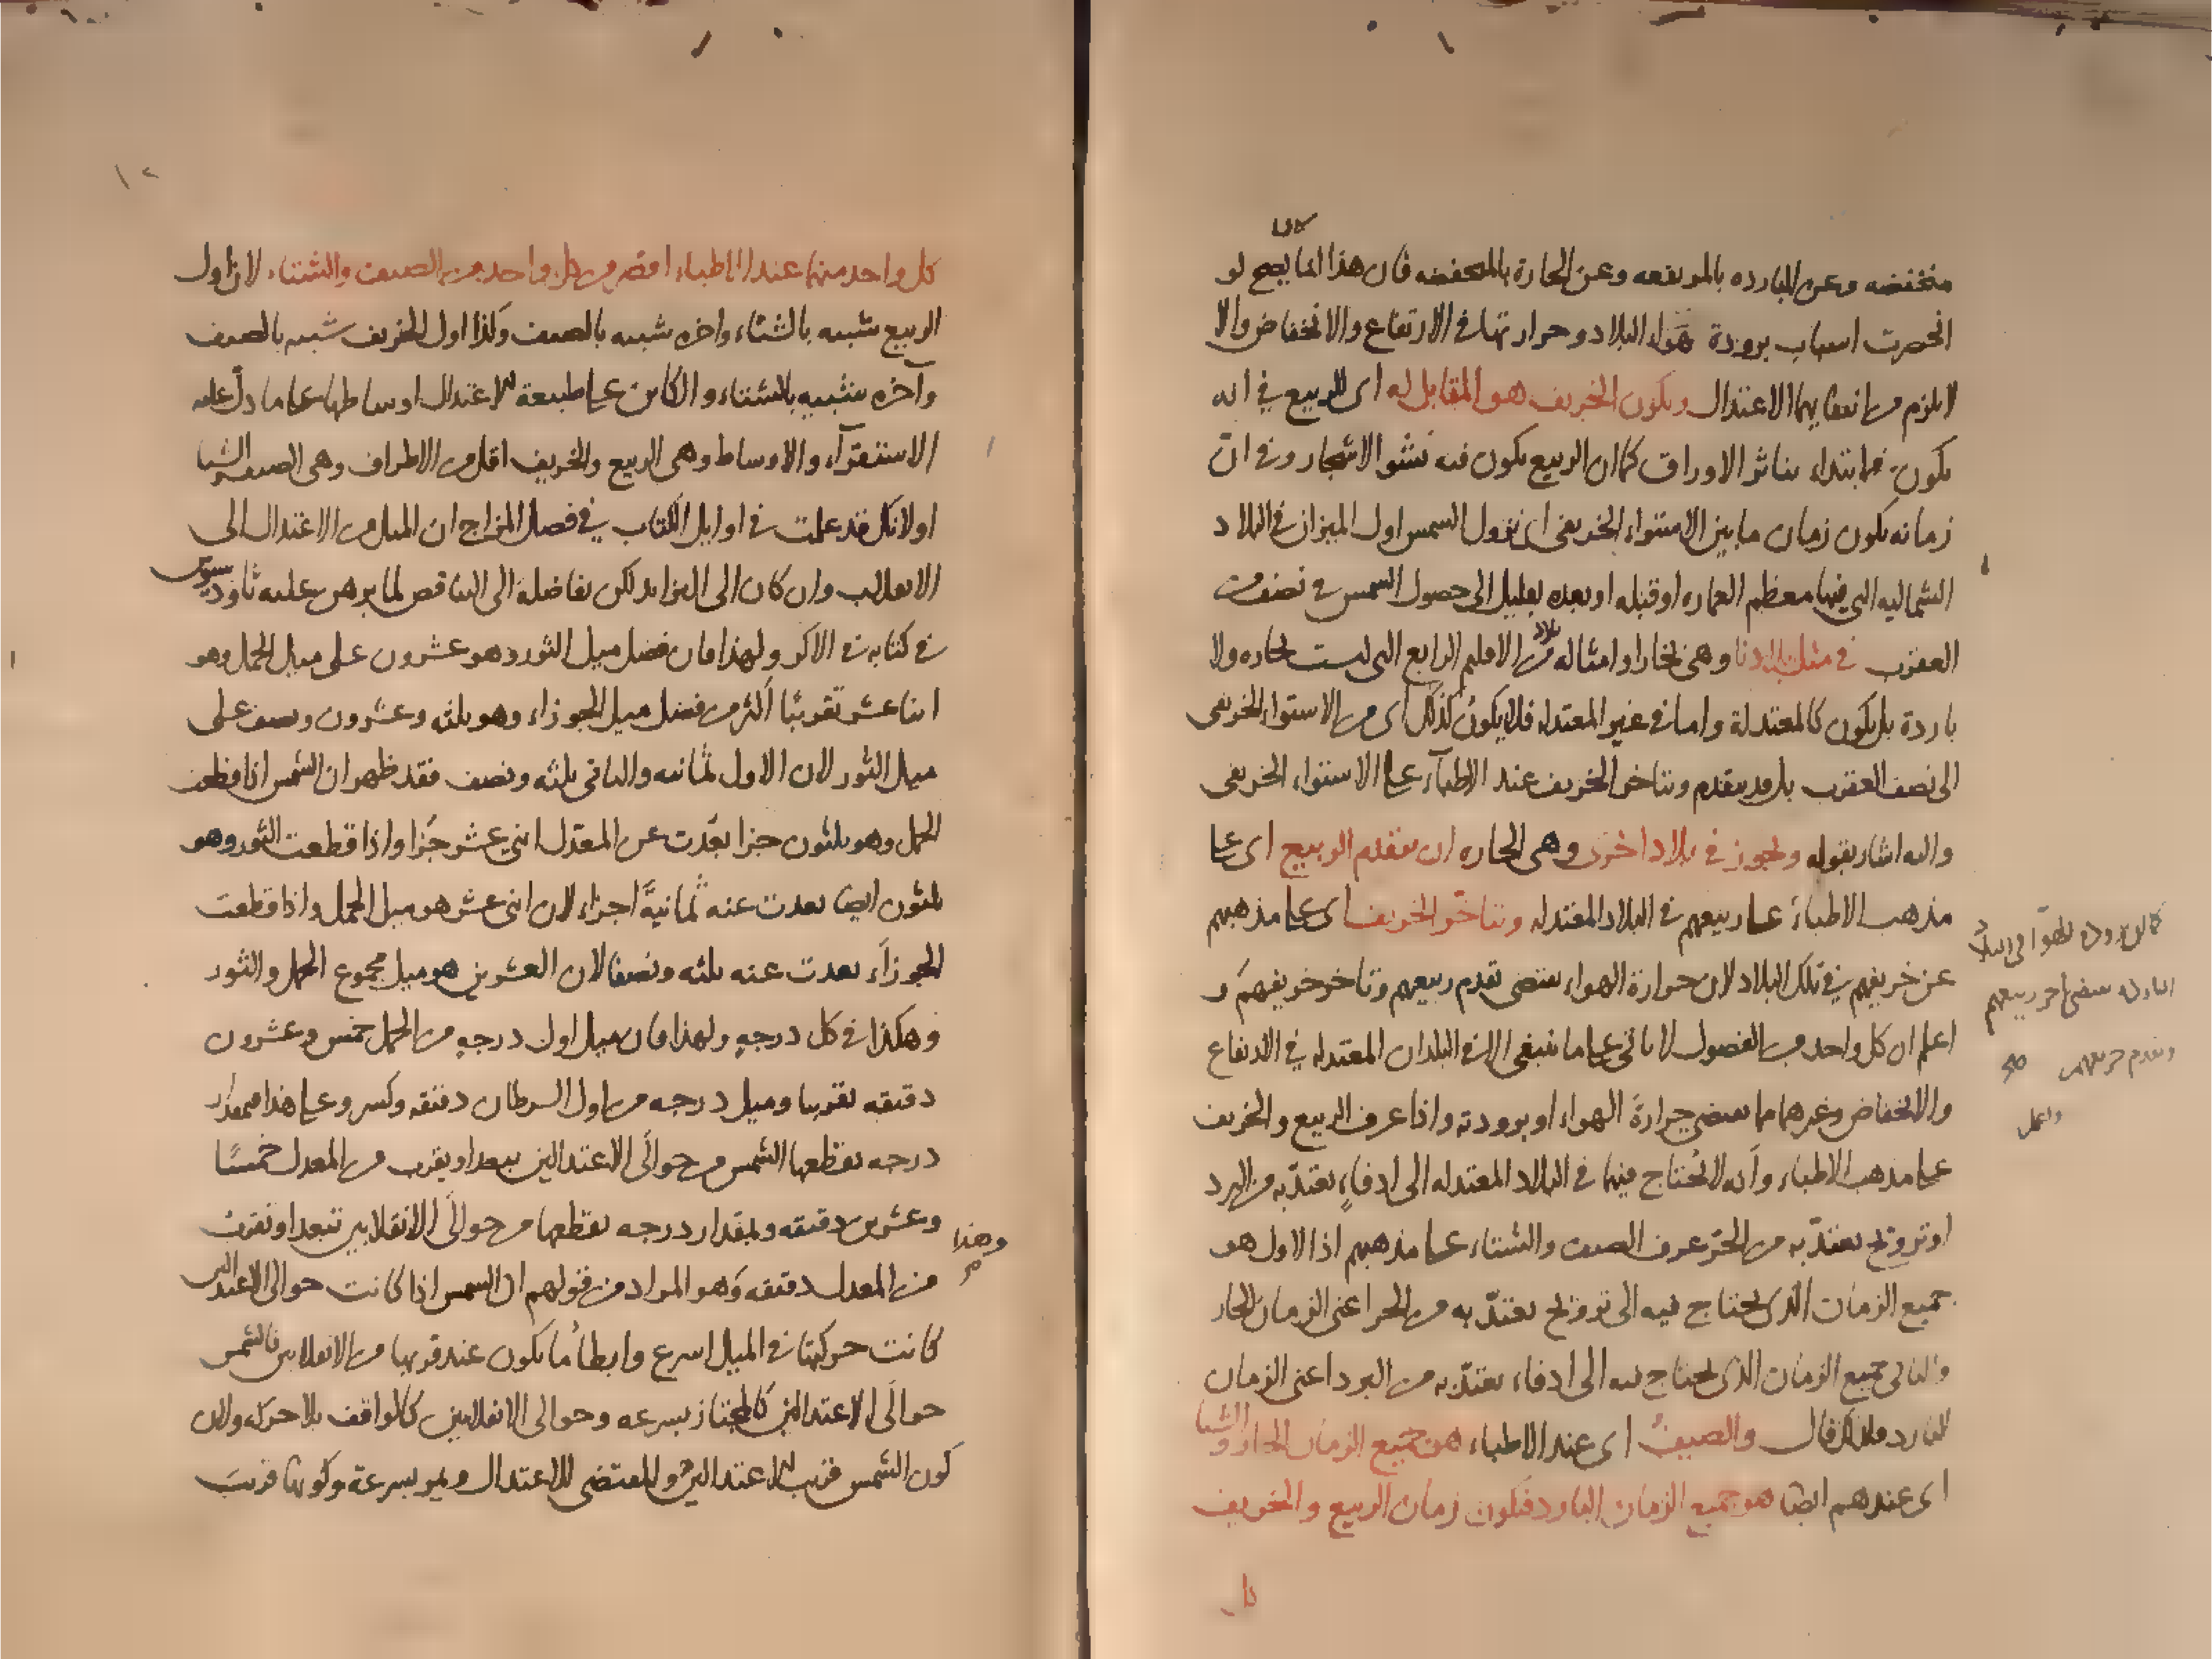 كان
منخفضه وعن الباردة بالمرتفعه وعن الحارة بالمنخفضه فان هذا انما يصح لو
انحصرت اسباب برودة هواء البلاد وحرارتها في الارتفاع والانخفاض والا
لا يلزم من انتفايهما الاعتدال ويكون الخريف هو المقابل له اى للربيع في انه
يكون فيه ابتداء تناثر الاوراق كما ان الربيع يكون فيه نشو الاشجار وفي ان
زمانه يكون زمان ما بين الاستواء الخريفى اى نزول الشمس اول الميزان في البلاد
الشماليه التى فيها معظم العماره او قبله او بعده بقليل الى حصول الشمس في نصف من
العقرب في مثل بلادنا وهى بخارا وامثاله من بلاد الاقليم الرابع التى ليست بحاره ولا
باردة بل يكون كالمعتدلة واما في غير المعتدله فلا يكون كذلك اى من الاستواء الخريفى
الى نصف العقرب بل قد يتقدم ويتاخر الخريف عند الاطبآء على الاستواء الخريفى
واليه اشار بقوله ويجوز في بلاد اخرى وهى الحاره ان يتقدم الربيع اى على
مذهب الاطباء على ربيعهم في البلاد المعتدله ويتاخر الخريف اى على مذهبهم
عن خريفهم في تلك البلاد لان حرارة الهواء يقتضى تقدم ربيعهم وتاخر خريفهم و
اعلم ان كل واحد من الفصول لا ياتى على ما ينبغى الا في البلدان المعتدله في الارتفاع
والانخفاض وغيرهما مما يقتضى حرارة الهواء او برودته واذا عرف الربيع والخريف
على مذهب الاطباء وانه لا يحتاج فيها في البلاد المعتدله الى ادفاء يعتد به من البرد
او ترويح يعتد به من الحر عرف الصيف والشتاء على مذهبهم اذ الاول هو
جميع الزمان الذى يحتاج فيه الى ترويح يعتد به من الحر اعنى الزمان الحار
والثانى جميع الزمان الذى يحتاج فيه الى ادفاء يعتد به من البرد اعنى الزمان
البارد فلذلك قال والصيف اى عند الاطباء هو جميع الزمان الحار والشتا
اى عندهم ايضا هو جميع الزمان البارد فيكون زمان الربيع والخريف
كل
كما ان برودة الهوا في البلاد
الباردة يقتضى تاخر ربيعهم
وتقدم خريفهم صح
كل واحد منهما عند الاطباء اقصر من كل واحد من الصيف والشتاء لان اول
الربيع شبيه بالشتاء واخره شبيه بالصيف وكذا اول الخريف شبيه بالصيف
وآخره شبيه بالشتاء والكاين على طبيعة الاعتدال اوساطها على ما دل عليه
الاستقرآء والاوساط وهى الربيع والخريف اقل من الاطراف وهى الصيف والشتا
او لانك قد علمت في اوايل الكتاب في فصل المزاج ان الميل من الاعتدال الى
الانقلاب وان كان الى التزايد لكن تفاضله الى التناقص لما برهن عليه ثاودسيوس
في كتابه في الاكر ولهذا فان فضل ميل الثور وهو عشرون على ميل الحمل وهو
اثنا عشر تقريبًا اكثر من فضل ميل الجوزاء وهو ثلثه وعشرون ونصف على
ميل الثور لان الاول ثمانيه والثانى ثلثه ونصف فقد ظهر ان الشمس اذا قطعت
الحمل وهو ثلثون جزا بعدت عن المعدل اثنى عشر جزا واذا قطعت الثور وهو
ثلثون ايضا بعدت عنه ثمانية اجزاء لان اثنى عشر هو ميل الحمل واذا قطعت
الجوزآء بعدت عنه ثلثه ونصفا لان العشرين هو ميل مجموع الحمل والثور
وهكذا في كل درجه ولهذا فان ميل اول درجه من الحمل خمس وعشرون
دقيقه تقريبا وميل درجه من اول السرطان دقيقه وكسر وعلى هذا فمقدار
درجه تقطعها الشمس من حوالى الاعتدالين يبعد او يقرب من المعدل خمسًا
وعشرين دقيقه ولمقدار درجه تقطعها من حوالى الانقلابين تبعد او تقرب
من المعدل دقيقه وهو المراد من قولهم ان الشمس اذا كانت حوالى الاعتدالين
كانت حركتها في الميل اسرع وابطأ ما يكون عند قربها من الانقلابين فالشمس
حوالى الاعتدالين كالمجتاز بسرعه وحوالى الانقلابين كالواقف بلا حركه ولان
كون الشمس قريب الاعتدالين هو المقتضى للاعتدال ويمر بسرعة وكونها قريب
وهذا